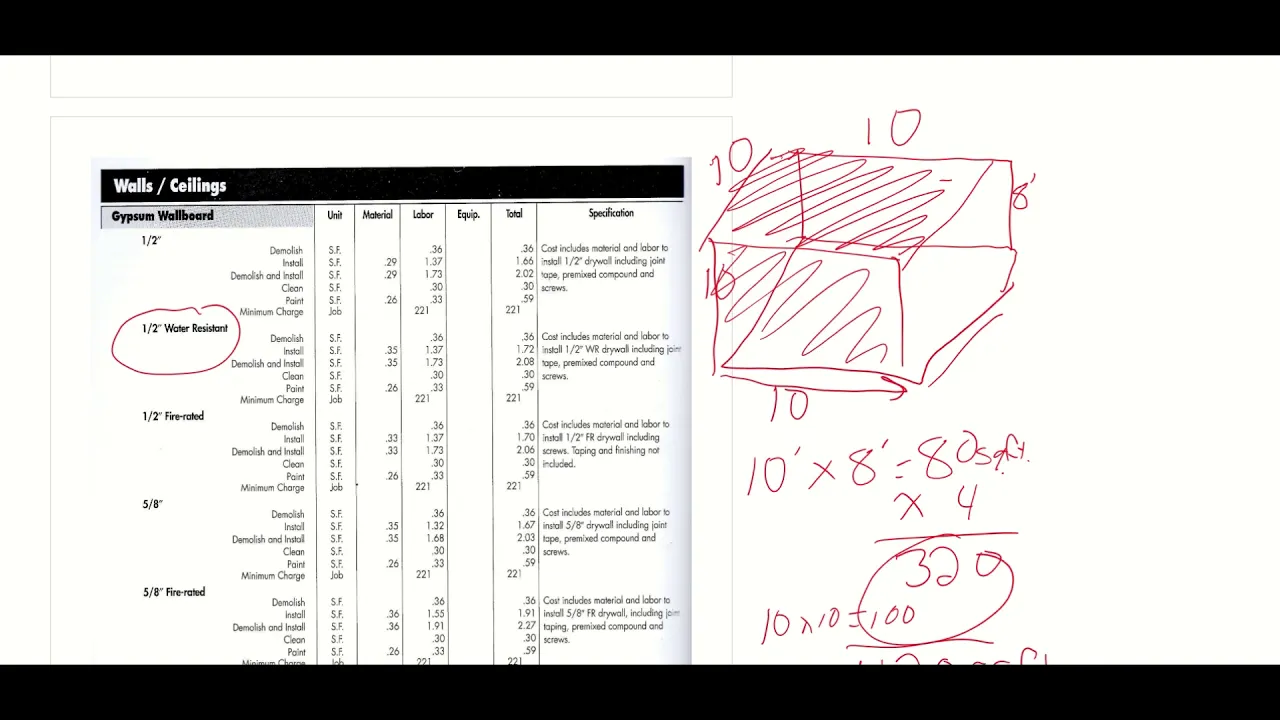 Walls / Ceilings
Gypsum Wallboard Unit Material Labor Equip. Total Specification
1/2"
Demolish S.F. .36 .36 Cost includes material and labor to
Install S.F. .29 1.37 1.66 install 1/2" drywall including joint
Demolish and Install S.F. .29 1.73 2.02 tape, premixed compound and
Clean S.F. .30 .30 screws.
Paint S.F. .26 .33 .59
Minimum Charge Job 221 221
1/2" Water Resistant
Demolish S.F. .36 .36 Cost includes material and labor to
Install S.F. .35 1.37 1.72 install 1/2" WR drywall including joint
Demolish and Install S.F. .35 1.73 2.08 tape, premixed compound and
Clean S.F. .30 .30 screws.
Paint S.F. .26 .33 .59
Minimum Charge Job 221 221
1/2" Fire-rated
Demolish S.F. .36 .36 Cost includes material and labor to
Install S.F. .33 1.37 1.70 install 1/2" FR drywall including
Demolish and Install S.F. .33 1.73 2.06 screws. Taping and finishing not
Clean S.F. .30 .30 included.
Paint S.F. .26 .33 .59
Minimum Charge Job 221 221
5/8"
Demolish S.F. .36 .36 Cost includes material and labor to
Install S.F. .35 1.32 1.67 install 5/8" drywall including joint
Demolish and Install S.F. .35 1.68 2.03 tape, premixed compound and
Clean S.F. .30 .30 screws.
Paint S.F. .26 .33 .59
Minimum Charge Job 221 221
5/8" Fire-rated
Demolish S.F. .36 .36 Cost includes material and labor to
Install S.F. .36 1.55 1.91 install 5/8" FR drywall, including joint
Demolish and Install S.F. .36 1.91 2.27 taping, premixed compound and
Clean S.F. .30 .30 screws.
Paint S.F. .26 .33 .59
Minimum Charge Job 221 221
10
10
8'
10
10
10' x 8' = 80 sq.ft.
x 4
320
10 x 10 = 100